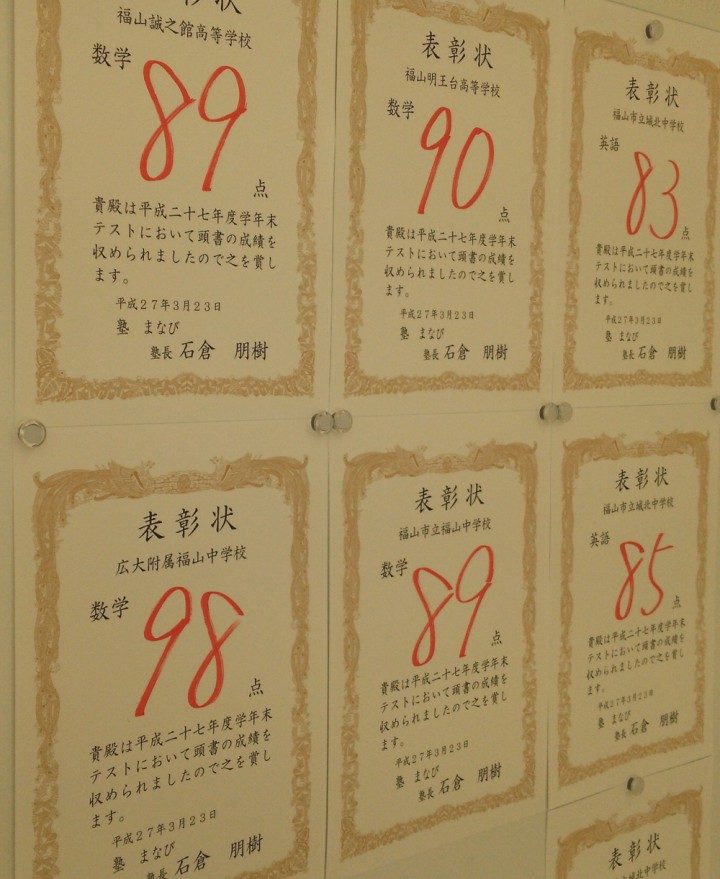 表彰状
福山誠之館高等学校
数学
89
点
貴殿は平成二十七年度学年末
テストにおいて頭書の成績を
収められましたので之を賞し
ます。
平成27年3月23日
塾 まなび
塾長 石倉 朋樹
表彰状
福山明王台高等学校
数学
90
点
貴殿は平成二十七年度学年末
テストにおいて頭書の成績を
収められましたので之を賞し
ます。
平成27年3月23日
塾 まなび
塾長 石倉 朋樹
表彰状
福山市立城北中学校
英語
83
点
貴殿は平成二十七年度学年末
テストにおいて頭書の成績を
収められましたので之を賞し
ます。
平成27年3月23日
塾 まなび
塾長 石倉 朋樹
表彰状
広大附属福山中学校
数学
98
点
貴殿は平成二十七年度学年末
テストにおいて頭書の成績を
収められましたので之を賞し
ます。
平成27年3月23日
塾 まなび
塾長 石倉 朋樹
表彰状
福山市立福山中学校
数学
89
点
貴殿は平成二十七年度学年末
テストにおいて頭書の成績を
収められましたので之を賞し
ます。
平成27年3月23日
塾 まなび
塾長 石倉 朋樹
表彰状
福山市立城北中学校
英語
85
点
貴殿は平成二十七年度学年末
テストにおいて頭書の成績を
収められましたので之を賞し
ます。
平成27年3月23日
塾 まなび
塾長 石倉 朋樹
表彰状
福山市立城北中学校